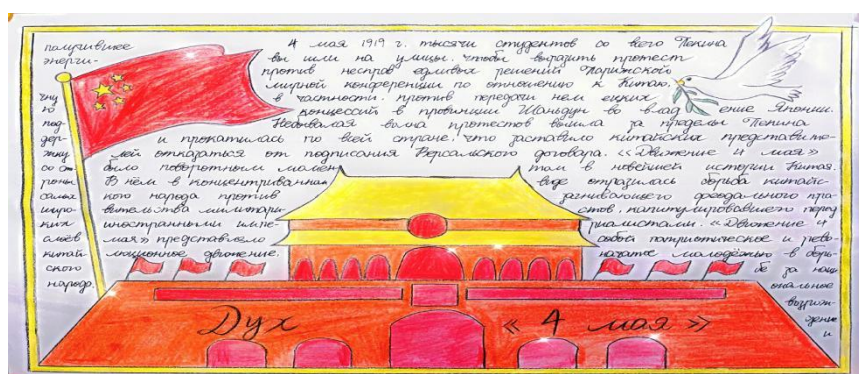 4 мая 1919 г. тысячи студентов со всего Пекина
вы шли на улицы. чтобы выразить протест
против несправ едливых решений Парижской
мирной конференции по отношению к Китаю,
в частности. против передачи нем ецких
концессий в провинции Шаньдун во влад ение Японии.
Небывалая волна протестов вышла за пределы Пекина
и прокатилась по всей стране. что заставило китайских представите-
лей отказаться от подписания Версальского договора. «Движение 4 мая»
было поворотным момен том в новейшей истории Китая.
В нём в виде отразилась борьба китайс-
кого народа против загнивающего феодального пра-
вительства милитари стов, капитулировавшего
иностранными импе- риалистами. «Движение 4
мая» представляло собой патриотическое и рево-
люционное движение. начатое молодёжью в борь-
бе за наци
ональное
возрож-
дение
и
получившее
энерги-
чну
ю
под-
дер-
жку
со сто
роны
самых
широ-
ких
слоёв
китай-
ского
народа.
Дух «4 мая»